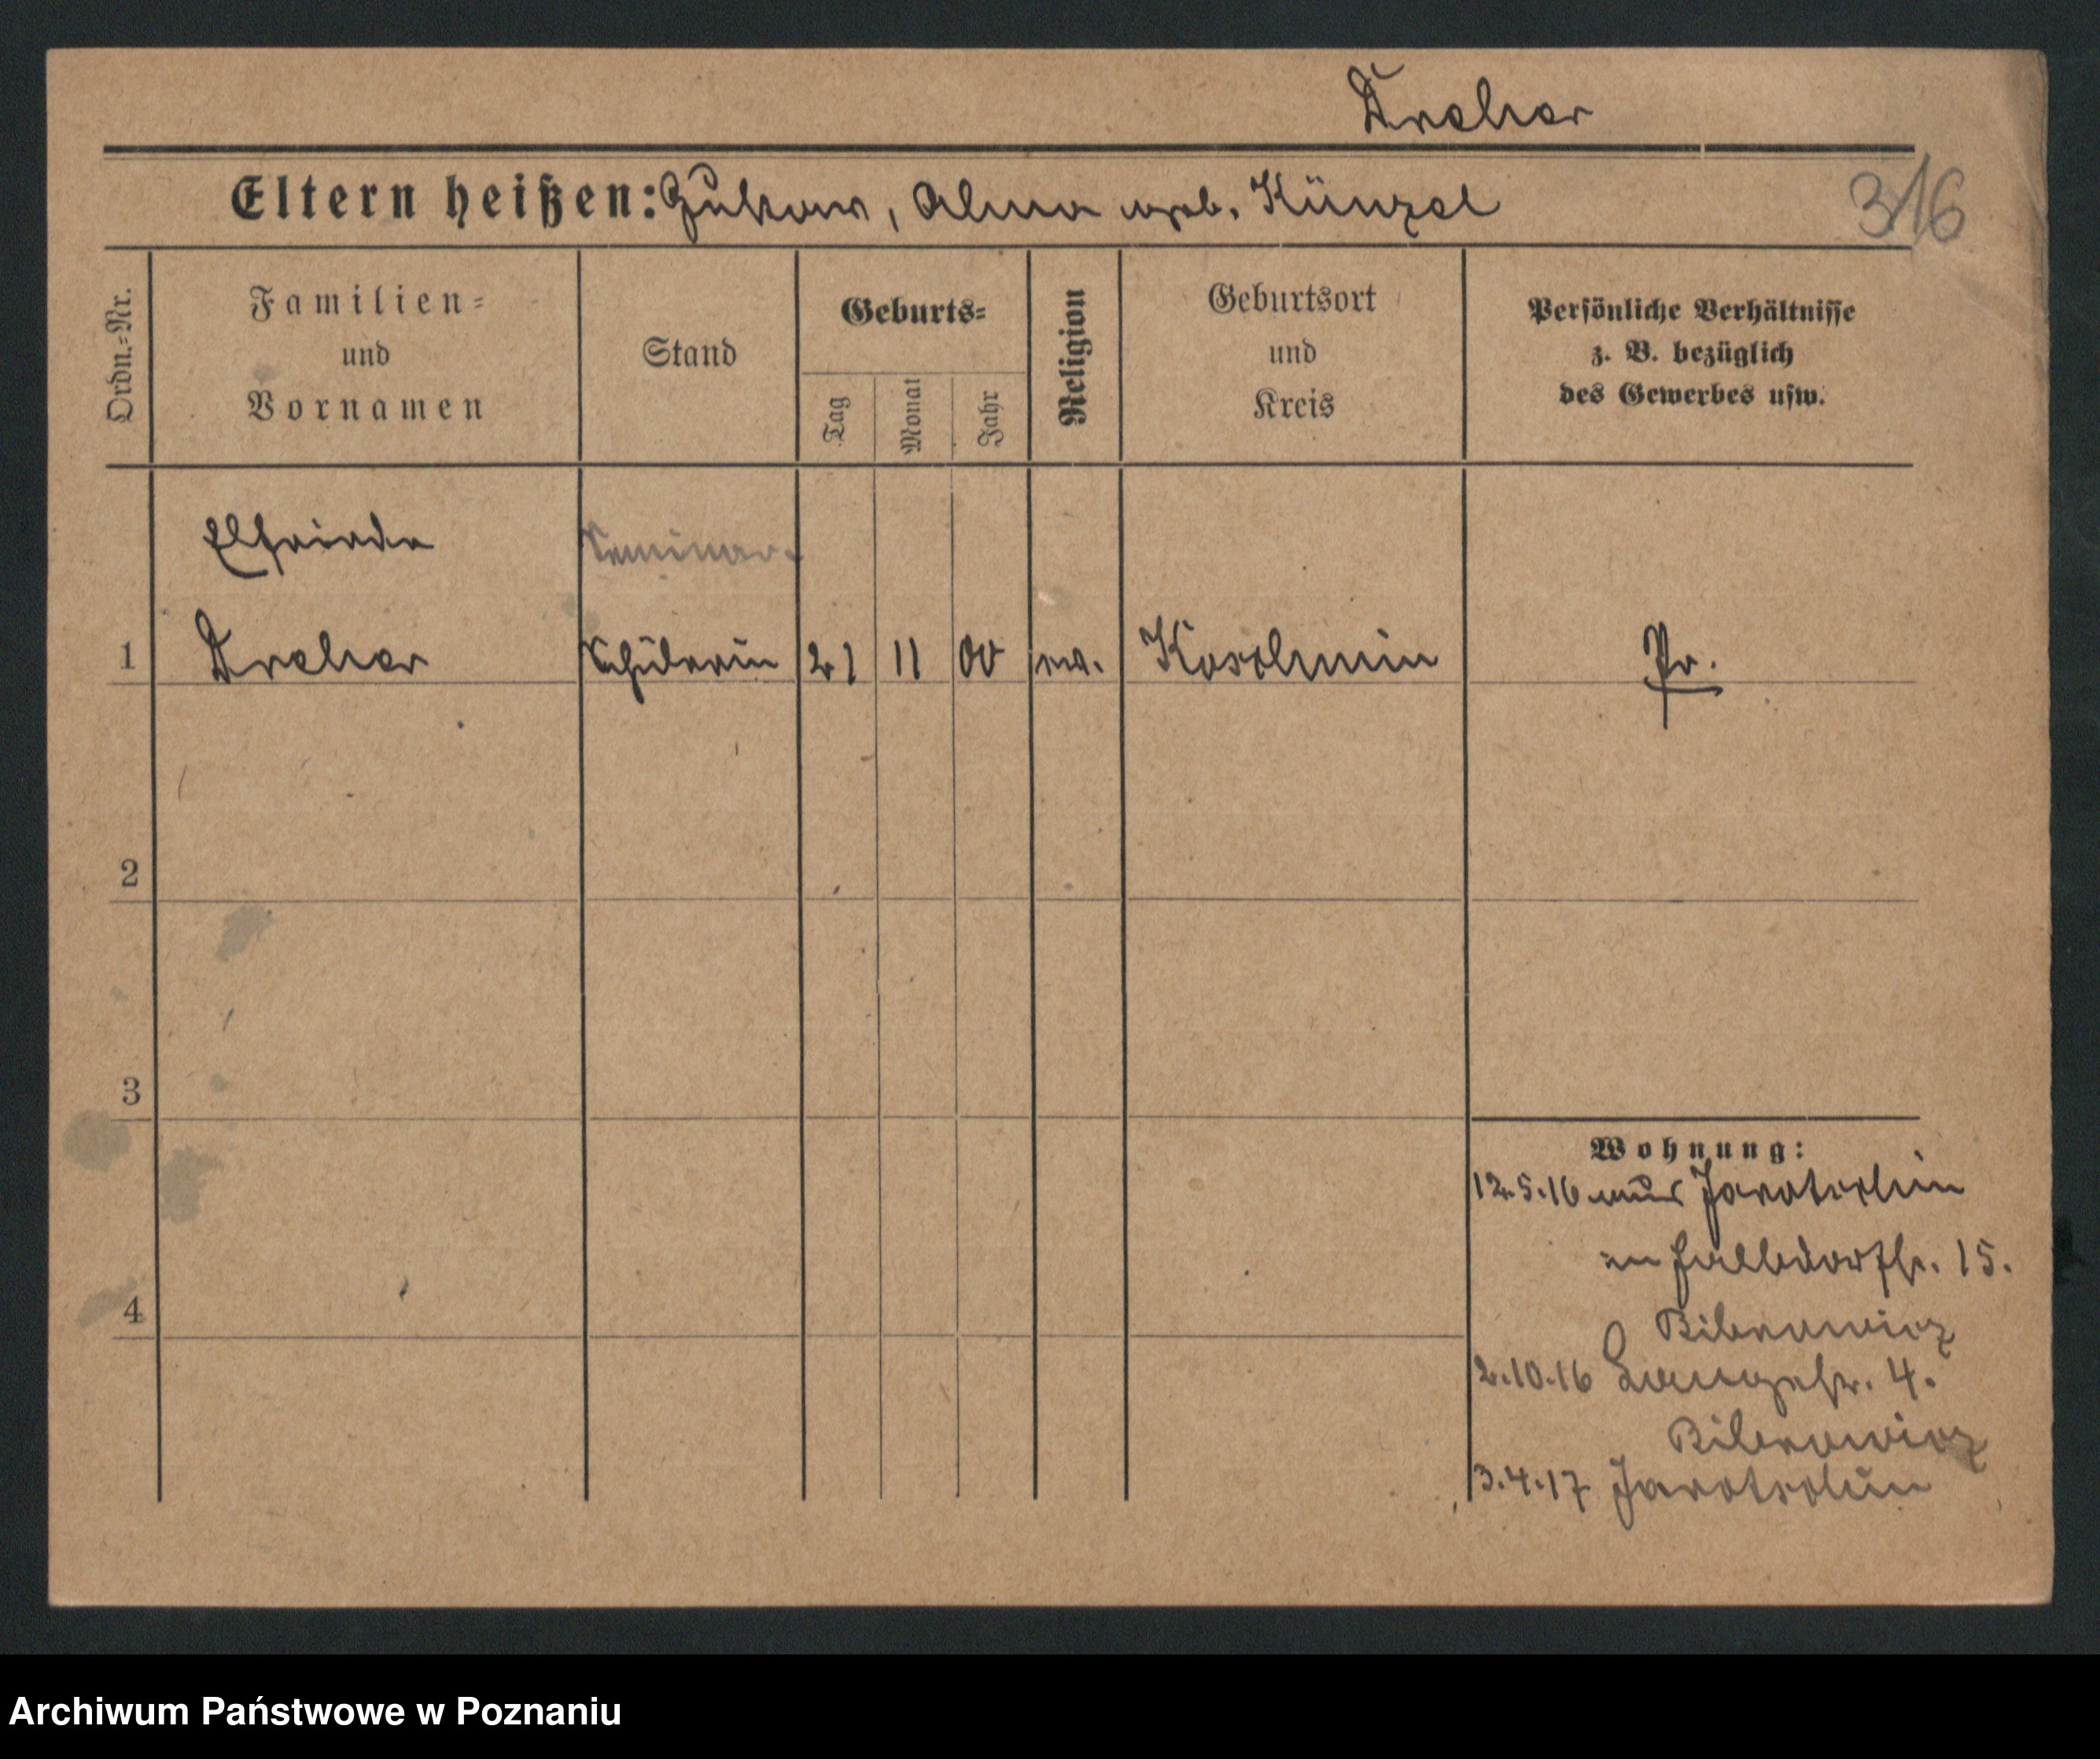 Dreher
Eltern heißen: Gustav, Alma geb. Künzel
316
Ordn.-Nr.
Familien-
und
Vornamen
Stand
Geburts-
Tag
Monat
Jahr
Religion
Geburtsort
und
Kreis
Persönliche Verhältnisse
z. B. bezüglich
des Gewerbes usw.
Elfriede
Seminar-
1 Dreher Schülerin 21 11 00 ev. Koschmin Pr.
2
3
4
Wohnung:
12.5.16 aus Jarotschin
in 15.
2.10.16 Langestr. 4.
3.4.17 Jarotschin
Archiwum Państwowe w Poznaniu